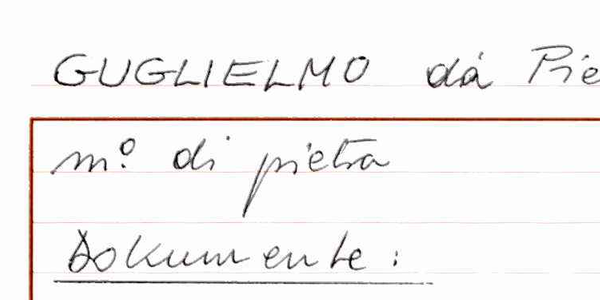 GUGLIELMO dá Pie
m.º di pietra
Dokumente: